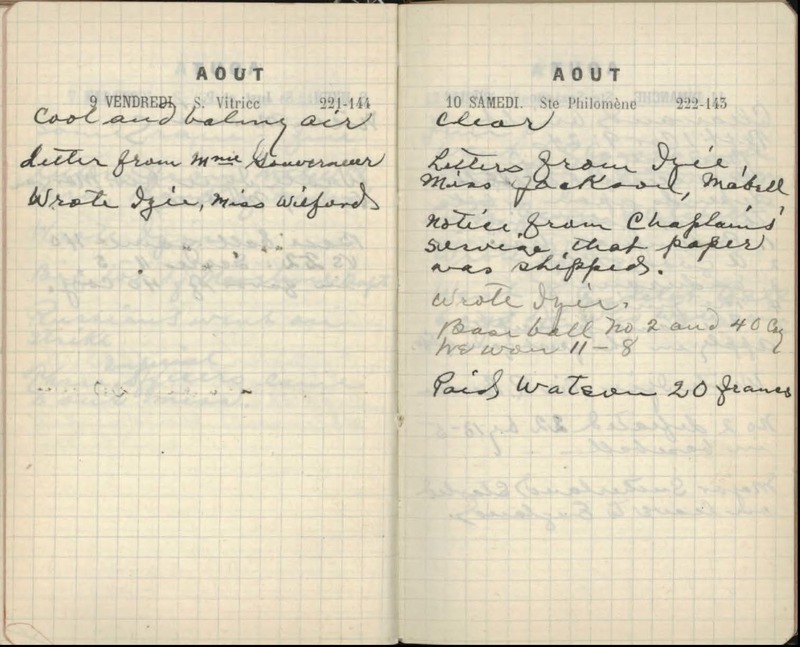 AOUT
9 VENDREDI. S. Vitrice 221-144
Cool and balmy air
Letter from Mme Gouverneur
Wrote Izie, Miss Wilford
AOUT
10 SAMEDI. Ste Philomène 222-143
Clear
Letters from Izie,
Miss Jackson, Mabell
Notice from Chaplains'
service that paper
was shipped.
Wrote Izie.
Base ball No 2 and 40 Coy
We won 11-8
Paid Watson 20 francs